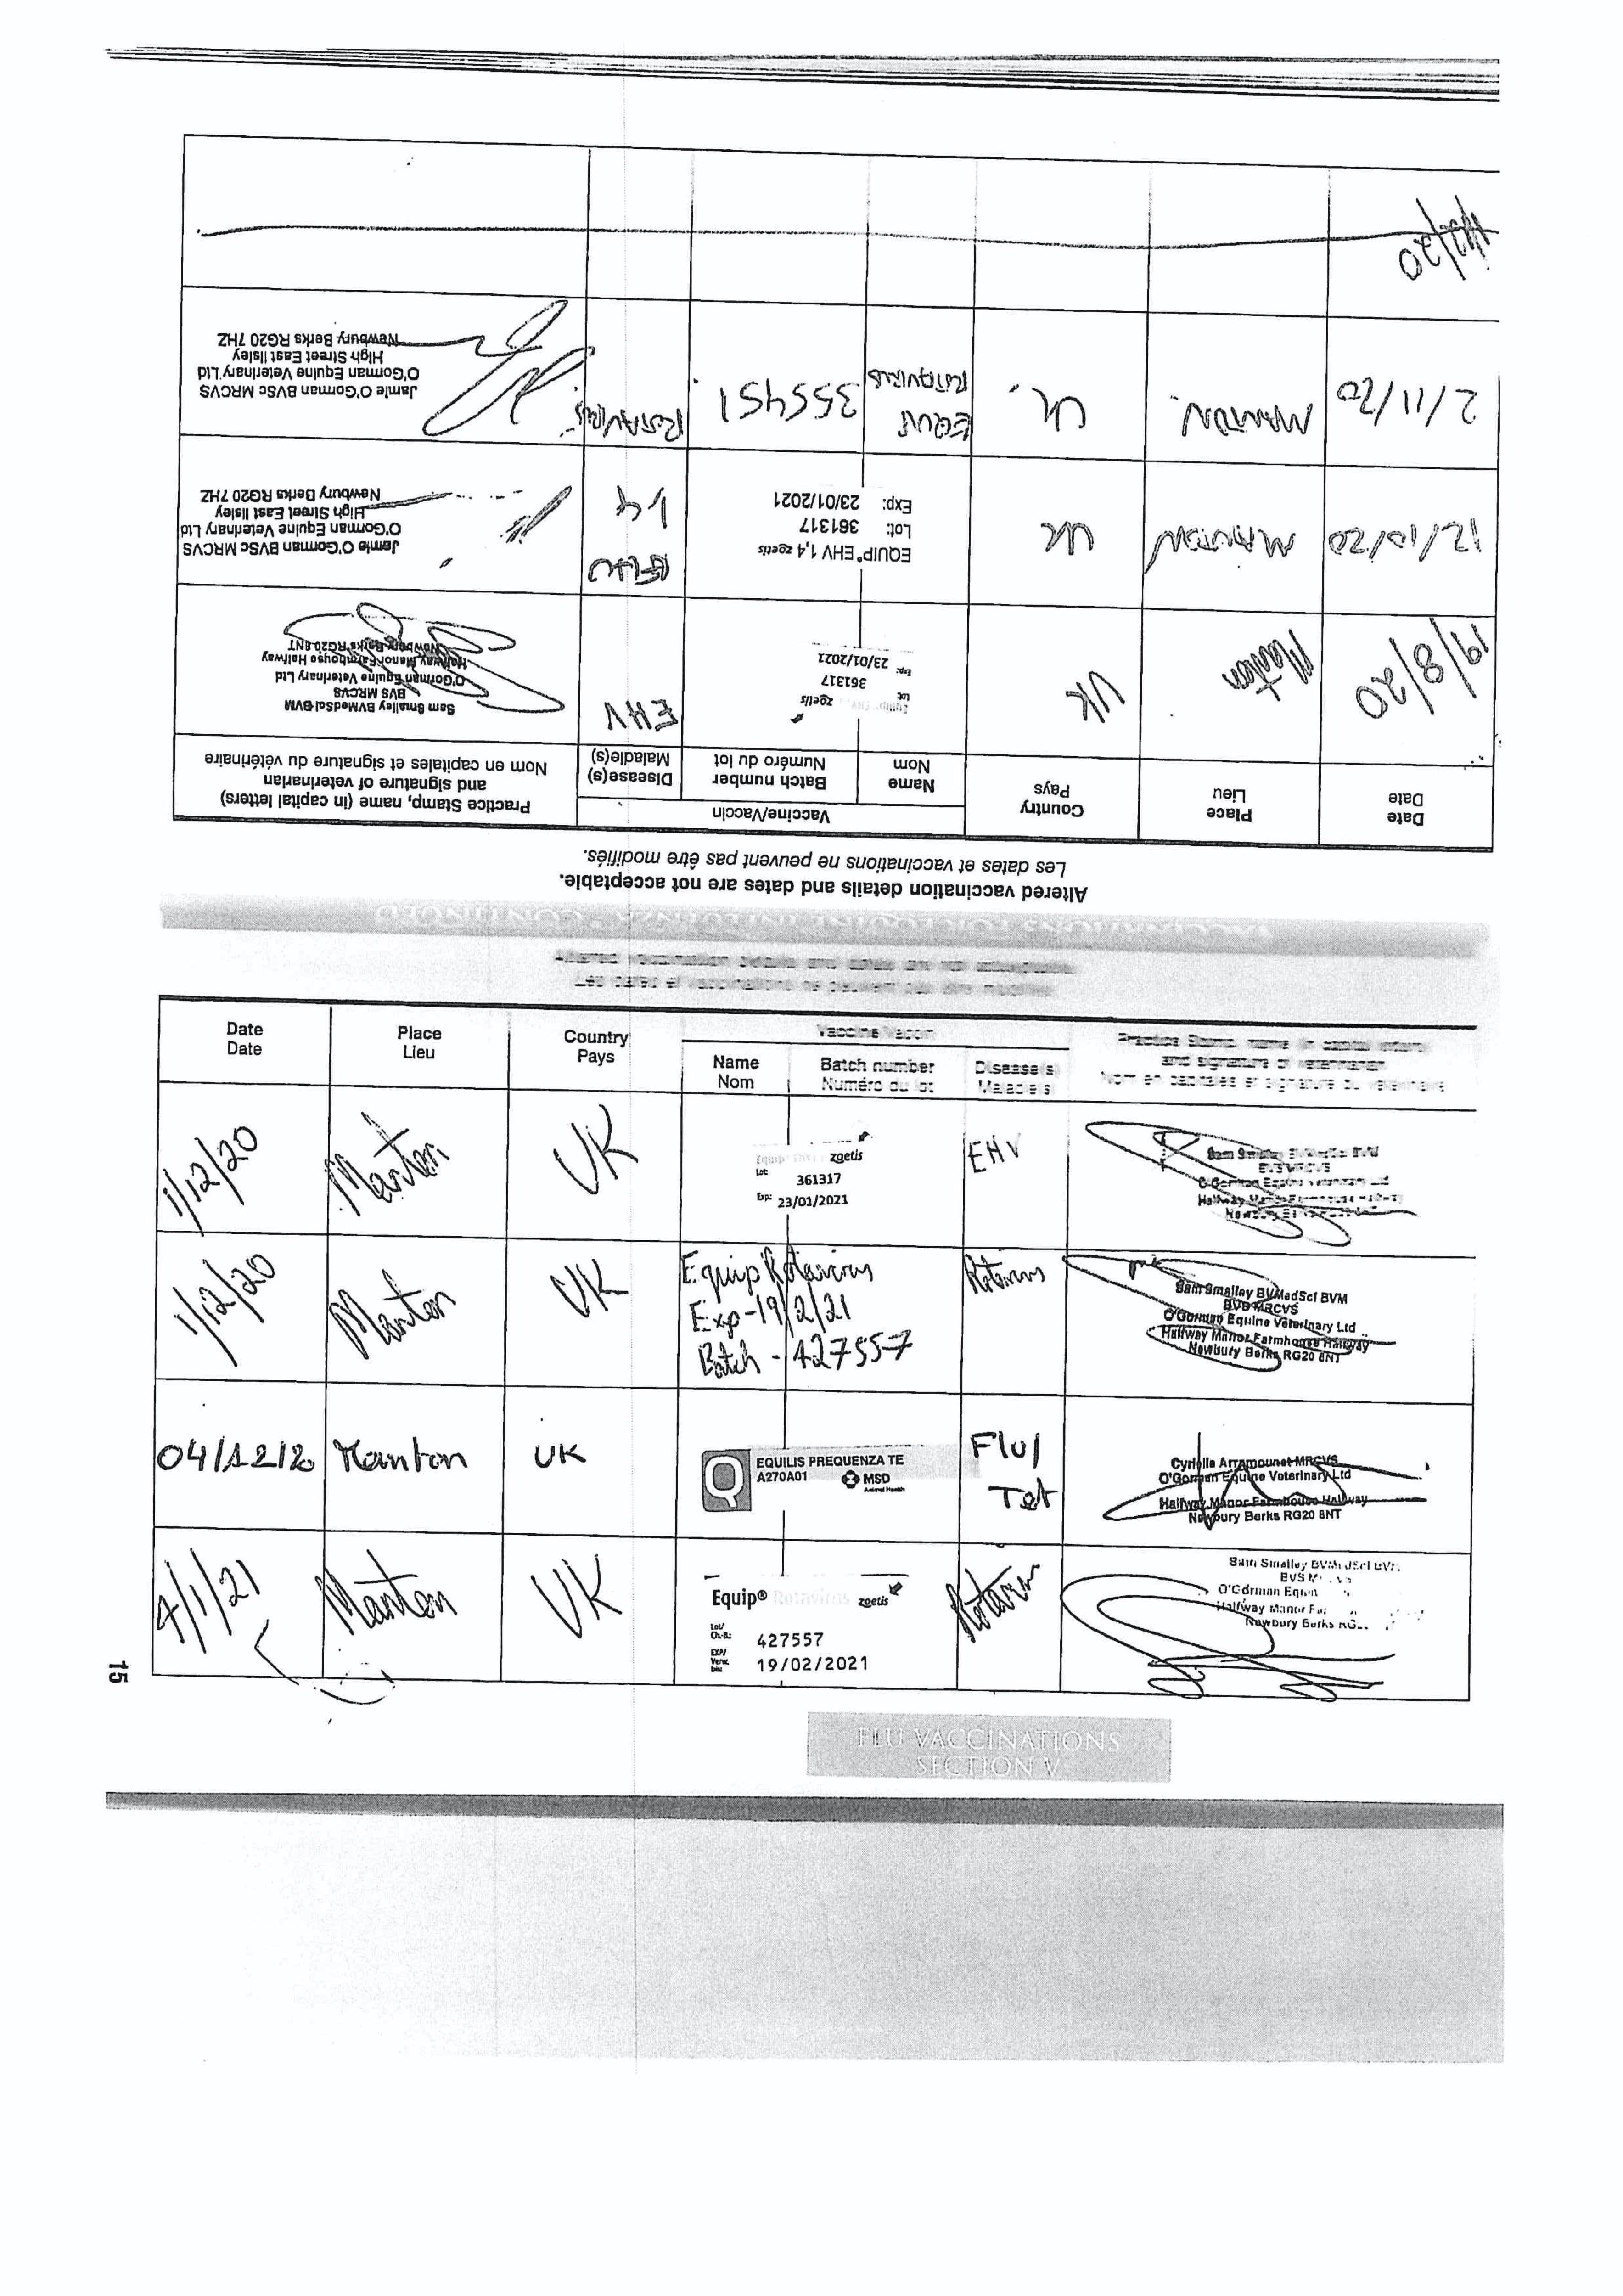 Altered vaccination details and dates are not acceptable.
Les dates et vaccinations ne peuvent pas être modifiés.
Date
Date
Place
Lieu
Country
Pays
Vaccine/Vaccin
Name
Nom
Batch number
Numéro du lot
Disease(s)
Maladie(s)
Practice Stamp, name (in capital letters)
and signature of veterinarian
Nom en capitales et signature du vétérinaire
19/8/20
Manton
UK
zoetis
Lot:
361317
Exp:
23/01/2021
EHV
Sam Smalley BVMedSci BVM
BVS MRCVS
O'Gorman Equine Veterinary Ltd
Halfway Manor Farmhouse Halfway
Newbury Berks RG20 8NT
12/10/20
MANTON
UK
EQUIP® EHV 1,4 zoetis
Lot: 361317
Exp: 23/01/2021
1,4
Jamie O'Gorman BVSc MRCVS
O'Gorman Equine Veterinary Ltd
High Street East Ilsley
Newbury Berks RG20 7HZ
2/11/20
MANTON
UK
EQUIP
ROTAVIRUS
355451
ROTAVIRUS
Jamie O'Gorman BVSc MRCVS
O'Gorman Equine Veterinary Ltd
High Street East Ilsley
Newbury Berks RG20 7HZ
VACCINATIONS FOR EQUINE INFLUENZA - CONTINUED
Altered vaccination details and dates are not acceptable.
Les dates et vaccinations ne peuvent pas être modifiés.
Date
Date
Place
Lieu
Country
Pays
Vaccine/Vaccin
Name
Nom
Batch number
Numéro du lot
Disease(s)
Maladie(s)
Practice Stamp, name (in capital letters)
and signature of veterinarian
Nom en capitales et signature du vétérinaire
1/12/20
Manton
UK
zoetis
Lot:
361317
Exp: 23/01/2021
EHV
Sam Smalley BVMedSci BVM
BVS MRCVS
O'Gorman Equine Veterinary Ltd
Halfway Manor Farmhouse Halfway
1/12/20
Manton
UK
Equip Rotavirus
Exp - 19/2/21
Batch - 427557
Rotavirus
Sam Smalley BVMedSci BVM
BVS MRCVS
O'Gorman Equine Veterinary Ltd
Halfway Manor Farmhouse Halfway
Newbury Berks RG20 8NT
04/12/2
Manton
UK
EQUILIS PREQUENZA TE
A270A01
MSD
Animal Health
Flu/
Tet
Cyrielle Arramounet MRCVS
O'Gorman Equine Veterinary Ltd
Halfway Manor Farmhouse Halfway
Newbury Berks RG20 8NT
4/1/21
Manton
UK
Equip® Rotavirus zoetis
427557
19/02/2021
Sam Smalley
O'Gorman
Halfway Manor
Newbury Berks
15
FLU VACCINATIONS
SECTION V